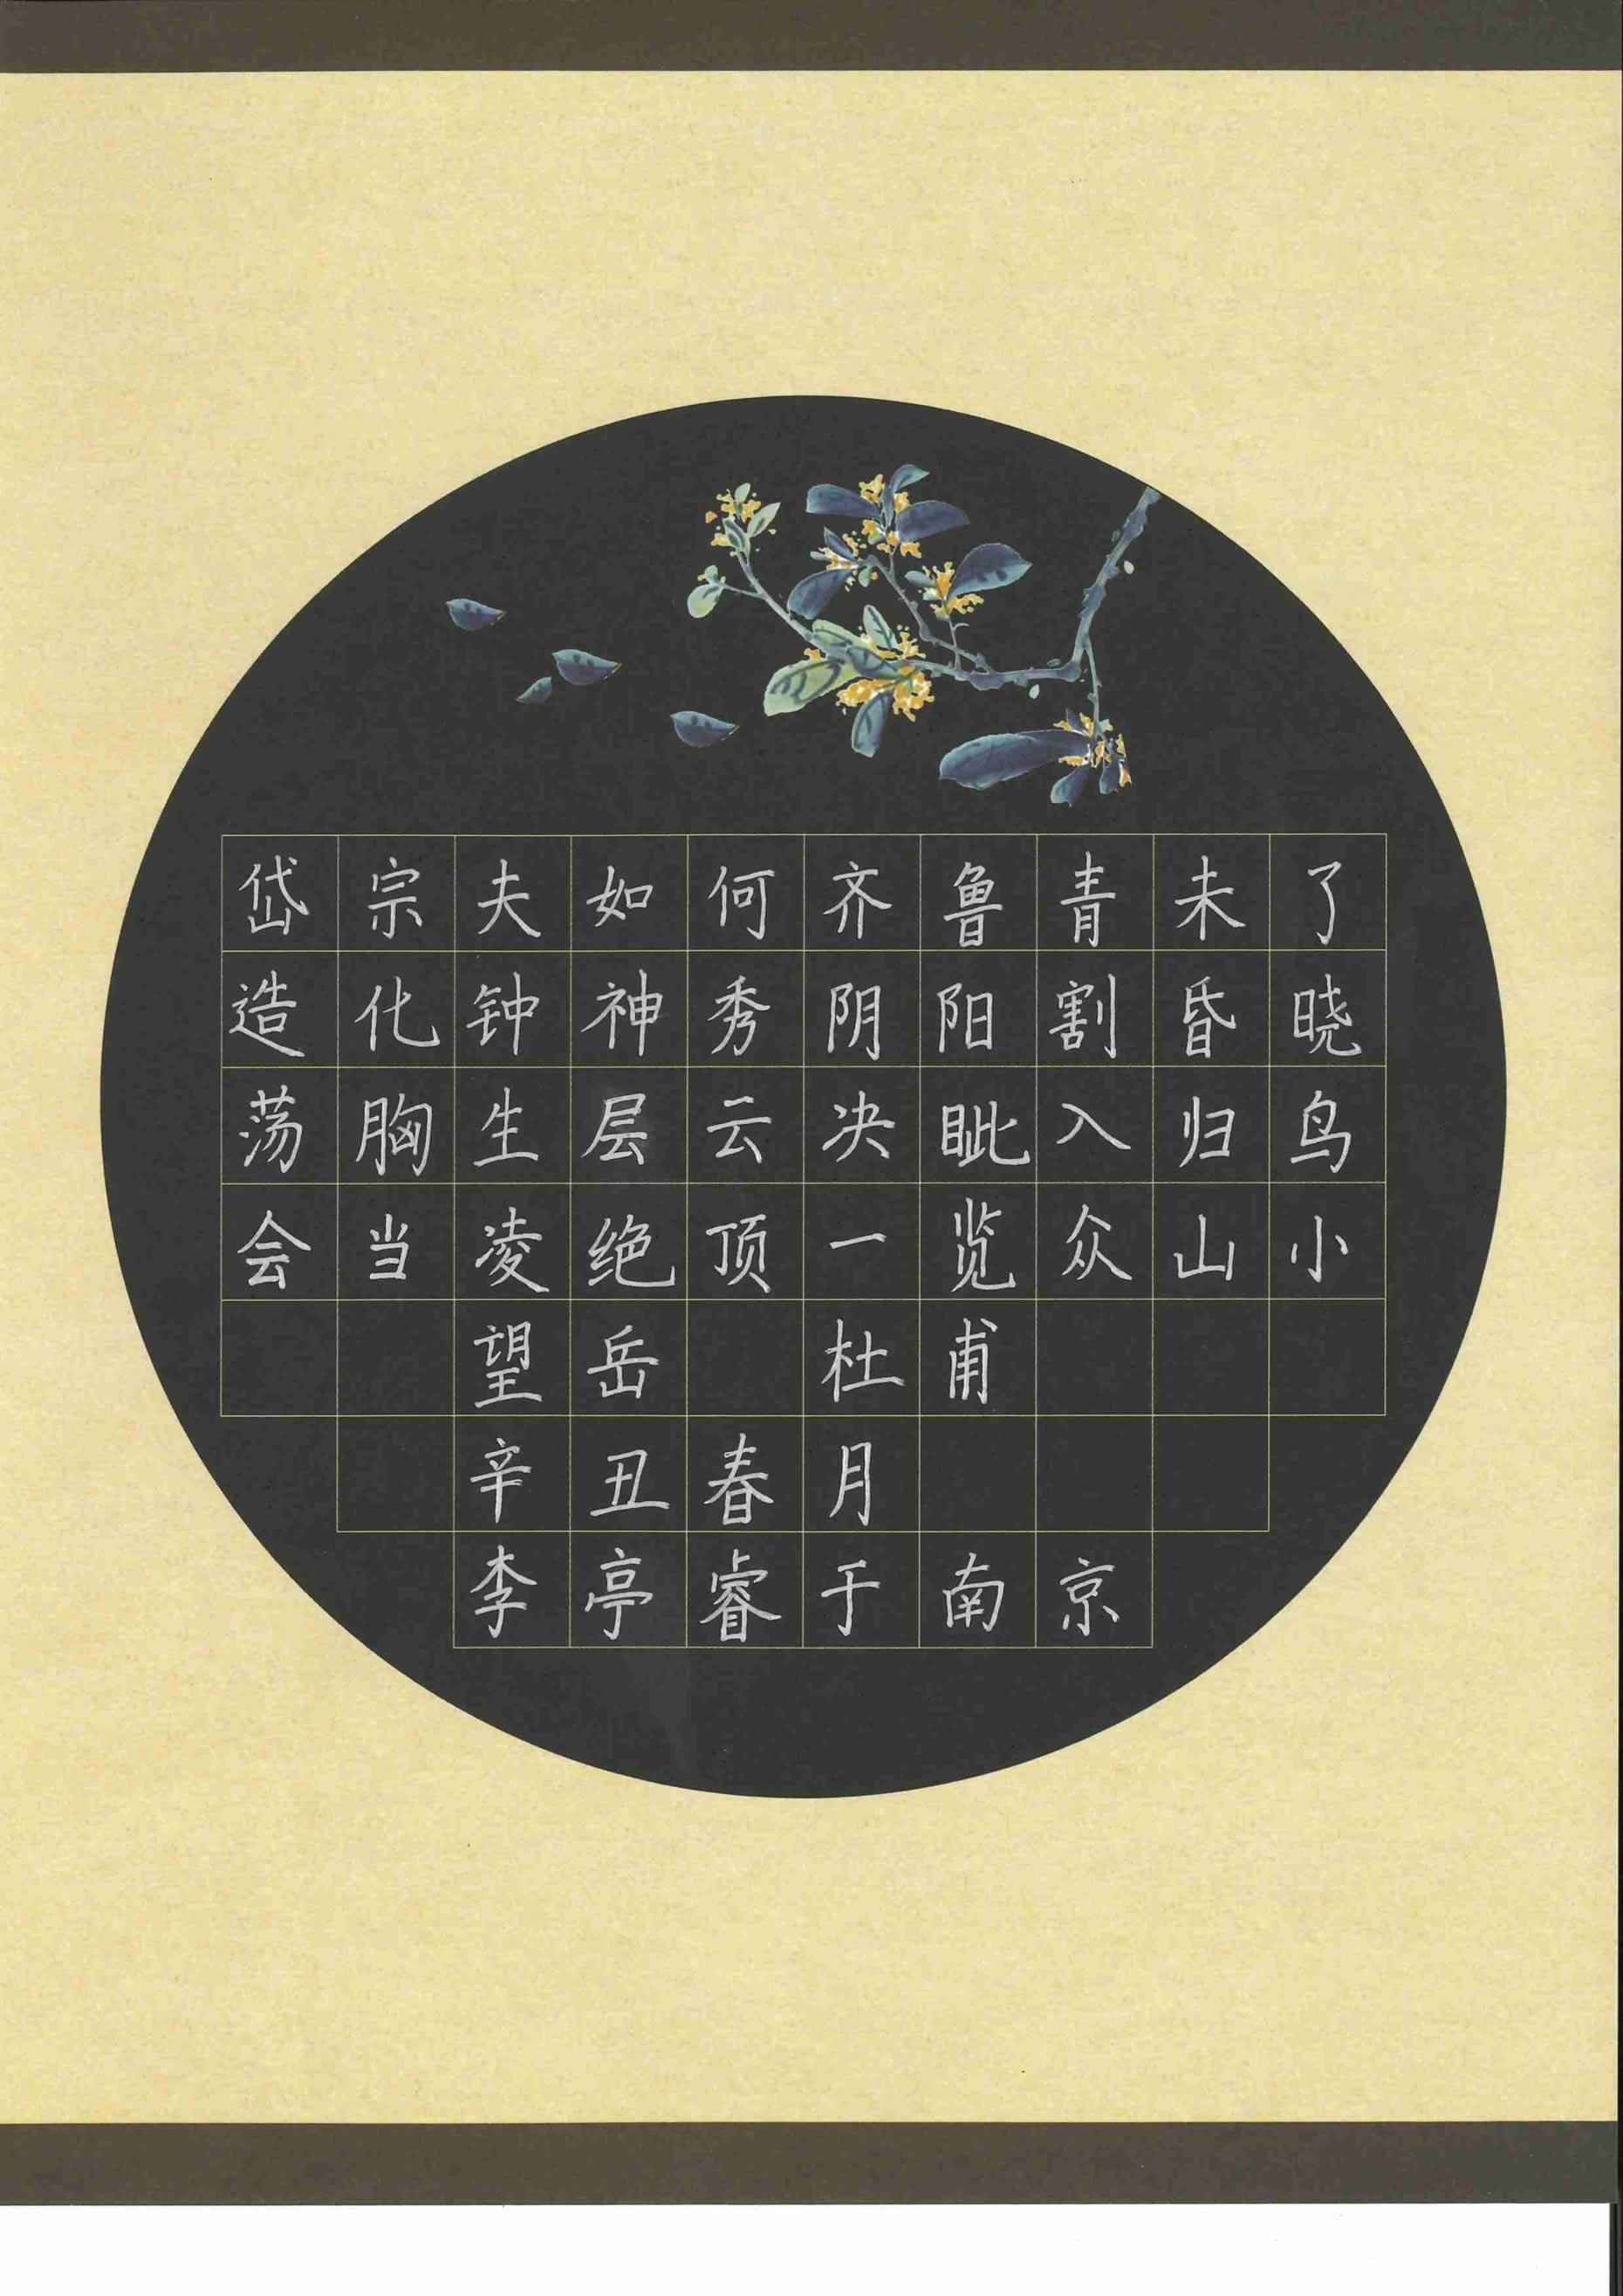 岱宗夫如何齐鲁青未了
造化钟神秀阴阳割昏晓
荡胸生层云决眦入归鸟
会当凌绝顶一览众山小
望岳 杜甫
辛丑春月
李亭睿于南京